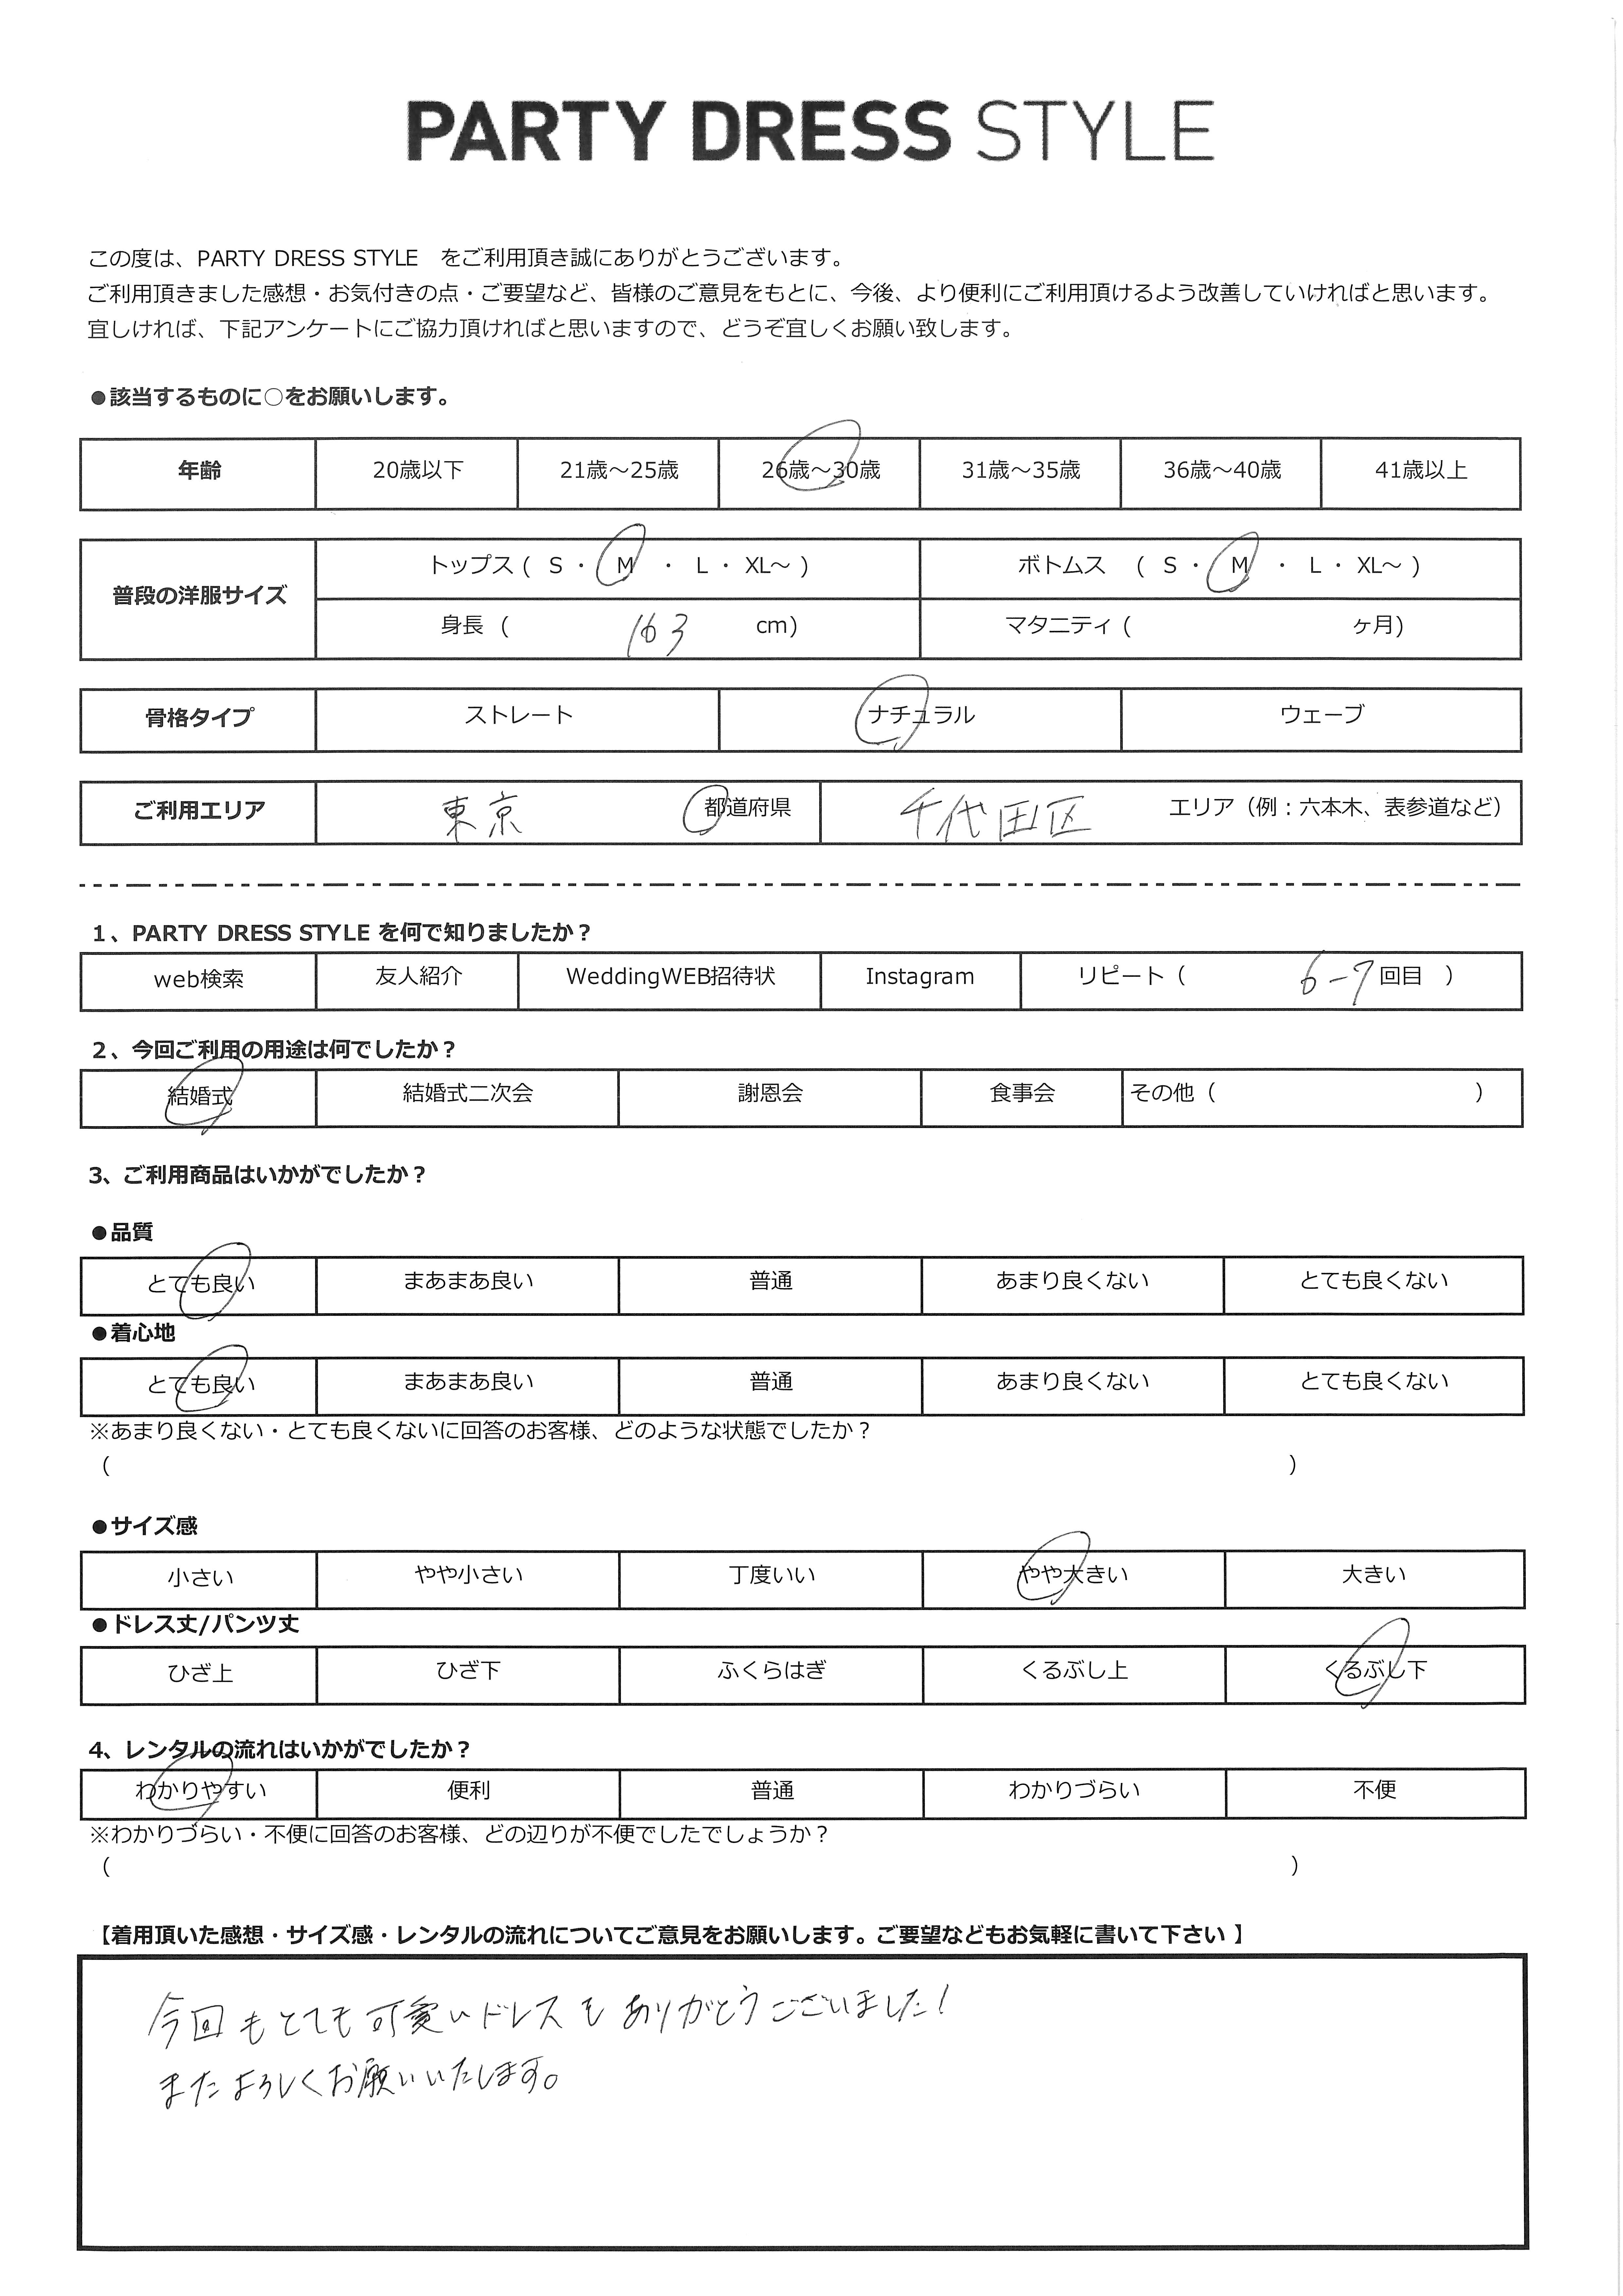 PARTY DRESS STYLE
この度は、PARTY DRESS STYLE をご利用頂き誠にありがとうございます。
ご利用頂きました感想・お気付きの点・ご要望など、皆様のご意見をもとに、今後、より便利にご利用頂けるよう改善していければと思います。
宜しければ、下記アンケートにご協力頂ければと思いますので、どうぞ宜しくお願い致します。
●該当するものに○をお願いします。
年齢 20歳以下 21歳～25歳 26歳～30歳 31歳～35歳 36歳～40歳 41歳以上
普段の洋服サイズ トップス ( S ・ M ・ L ・ XL～ ) ボトムス ( S ・ M ・ L ・ XL～ )
身長 ( 163 cm) マタニティ ( ヶ月)
骨格タイプ ストレート ナチュラル ウェーブ
ご利用エリア 東京 都道府県 千代田区 エリア（例：六本木、表参道など）
1、PARTY DRESS STYLE を何で知りましたか？
web検索 友人紹介 WeddingWEB招待状 Instagram リピート（ 6-7 回目 ）
2、今回ご利用の用途は何でしたか？
結婚式 結婚式二次会 謝恩会 食事会 その他（ ）
3、ご利用商品はいかがでしたか？
●品質
とても良い まあまあ良い 普通 あまり良くない とても良くない
●着心地
とても良い まあまあ良い 普通 あまり良くない とても良くない
※あまり良くない・とても良くないに回答のお客様、どのような状態でしたか？
( )
●サイズ感
小さい やや小さい 丁度いい やや大きい 大きい
●ドレス丈/パンツ丈
ひざ上 ひざ下 ふくらはぎ くるぶし上 くるぶし下
4、レンタルの流れはいかがでしたか？
わかりやすい 便利 普通 わかりづらい 不便
※わかりづらい・不便に回答のお客様、どの辺りが不便でしたでしょうか？
( )
【着用頂いた感想・サイズ感・レンタルの流れについてご意見をお願いします。ご要望などもお気軽に書いて下さい 】
今回もとても可愛いドレスをありがとうございました！
またよろしくお願いいたします。